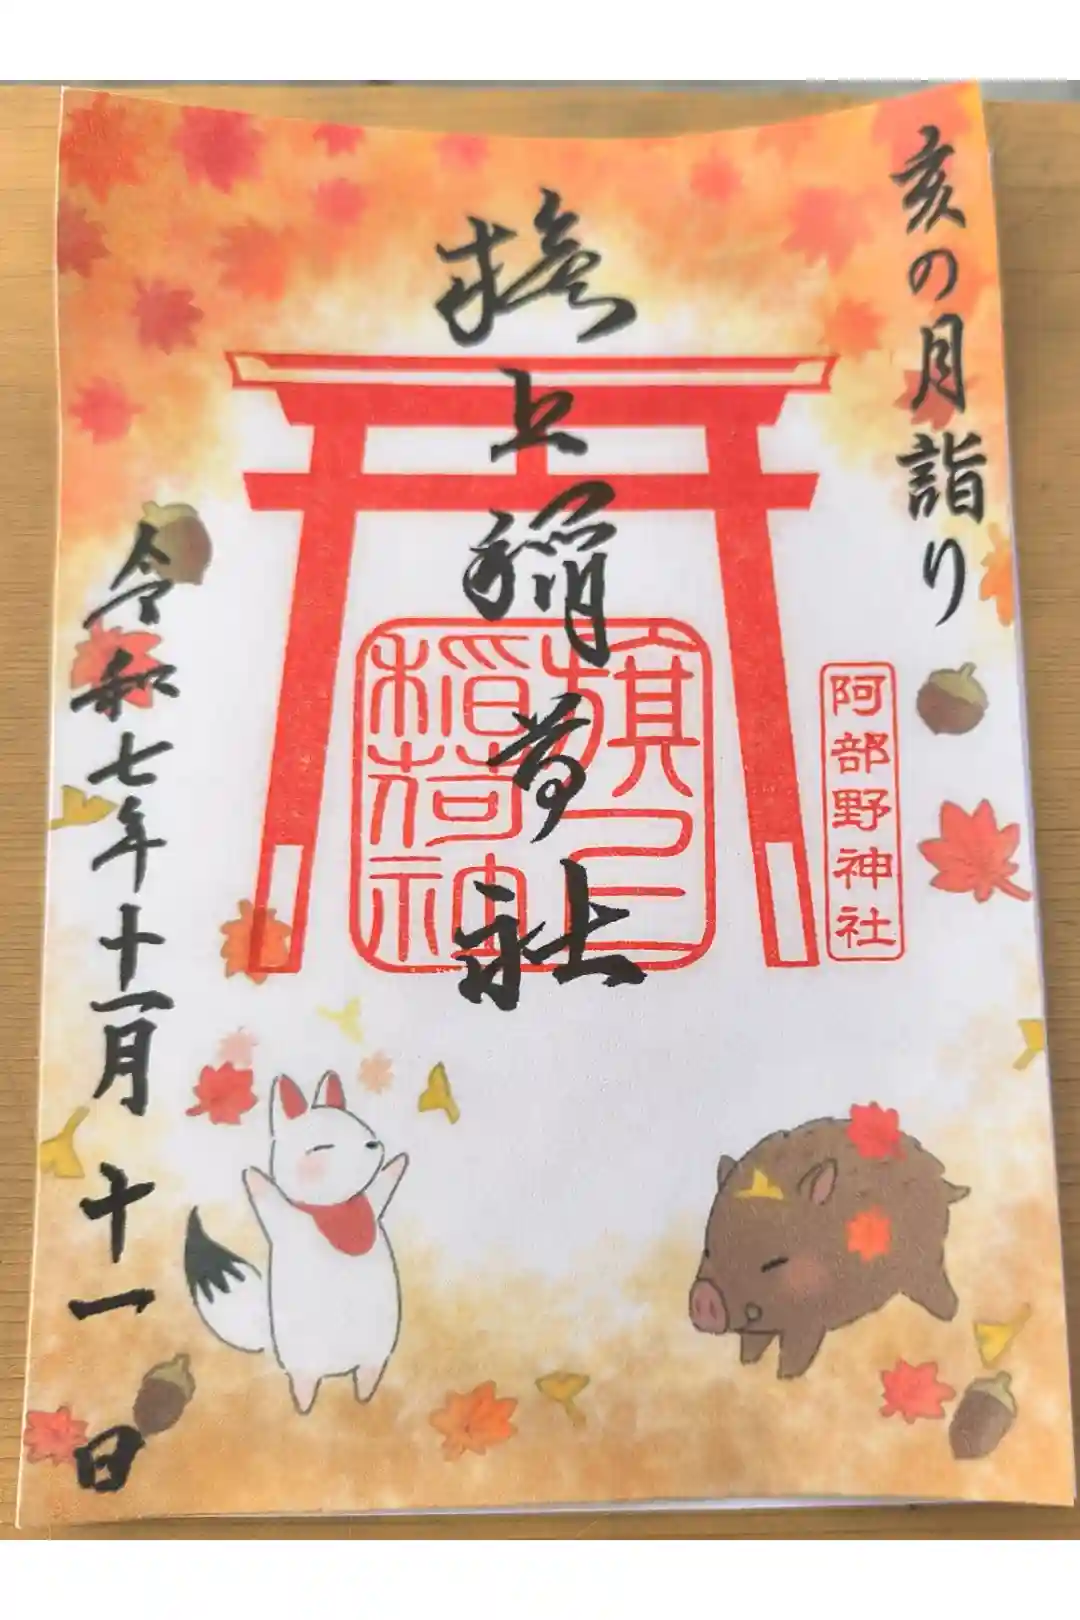 亥の月詣り
阿部野神社
旗上稲荷社
旗上
稲荷神
令和七年十一月十一日